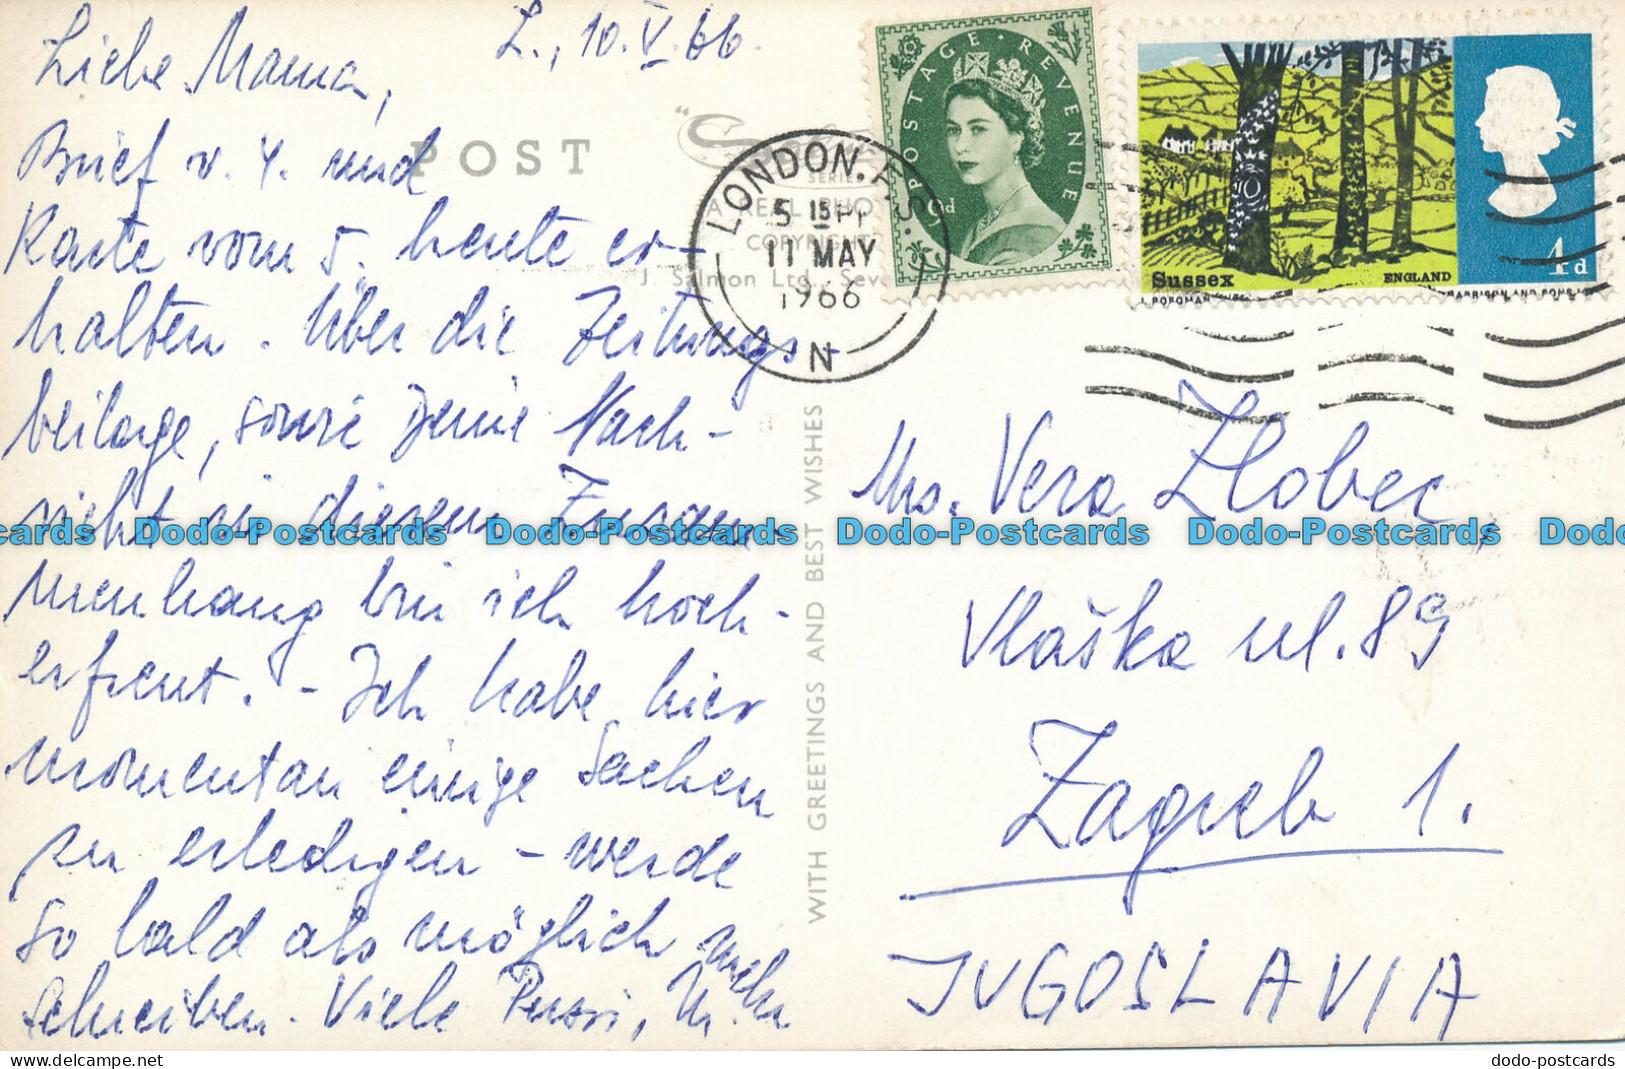 L., 10.V.66.
Liebe Mama,
Brief v. 4. und
Karte vom 5. heute er-
halten. Über die Zeitungs-
beilage, sowie Deine Nach-
richt in diesem Zusam-
menhang bin ich hoch-
erfreut. - Ich habe hier
momentan einige Sachen
zu erledigen - werde
so bald als möglich mehr
schreiben. Viele Pussi,
POST
SERIES
A REAL PHOTO
COPYRIGHT
J. Salmon Ltd., Seve
WITH GREETINGS AND BEST WISHES
LONDON. F.S
5 15 PM
11 MAY
1966
N
POSTAGE · REVENUE
9d
Sussex
ENGLAND
4d
Mrs. Vera Zlobec,
Vlaška ul. 89
Zagreb 1.
JUGOSLAVIA
cards Dodo-Postcards Dodo-Postcards Dodo-Postcards Dodo-Postcards Dodo
dodo-postcards